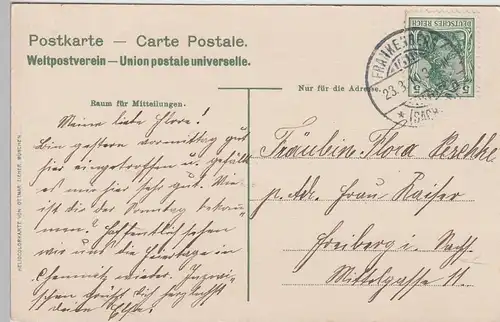 Postkarte — Carte Postale.
Weltpostverein — Union postale universelle.
Nur für die Adresse.
Raum für Mitteilungen.
DEUTSCHES REICH
5 5
FRANKENBERG
23.3.
* (SACHSEN)
Meine liebe Flora!
Bin gestern vormittag gut
hier eingetroffen u. gefällt
es mir hier sehr gut. Wie
ist dir der Sonntag bekom-
men? Hoffentlich sehen
wir uns die Feiertage in
Chemnitz wieder. Inzwi-
schen grüßt dich herzlichst
deine Elsa.
Fräulein Flora
p. Adr. Frau Kaiser
Freiberg i. Sach.
Mittelgasse 11.
HELIOCOLORKARTE VON OTTMAR ZIEHER, MÜNCHEN.